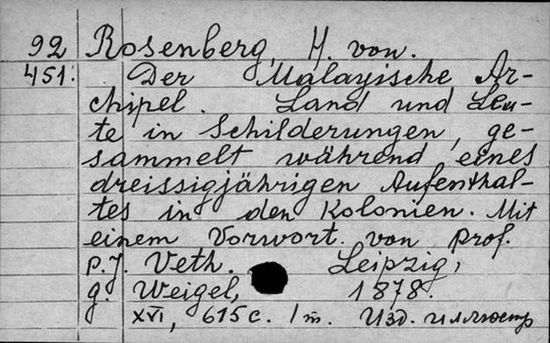 92 Rosenberg, H. von.
451. Der Malayische Ar-
chipel. Land und Leu-
te in Schilderungen, ge-
sammelt während eines
dreissigjährigen Aufenthal-
tes in den Kolonien. Mit
einem Vorwort von Prof.
P. J. Veth. Leipzig,
G. Weigel, 1878.
XVI, 615 с. 1 т. Изд. иллюстр